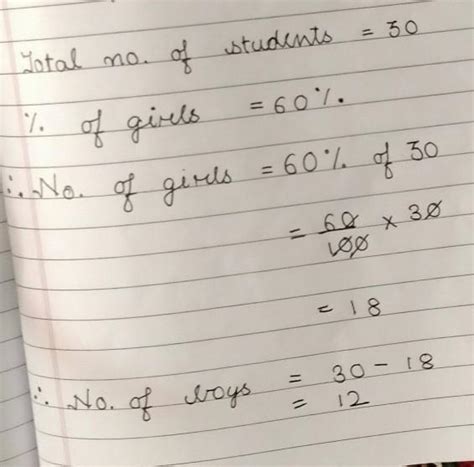 Total no. of students = 30
% of girls = 60%.
∴ No. of girls = 60% of 30
= 60/100 × 30
= 18
∴ No. of boys = 30 - 18
= 12